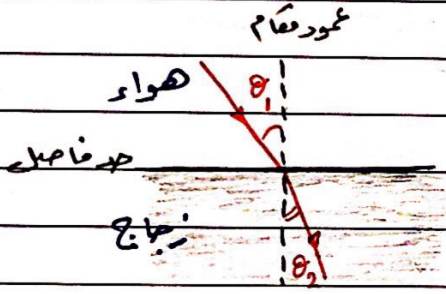 عمود مقام
هواء
θ₁
حد فاصل
زجاج
θ₂